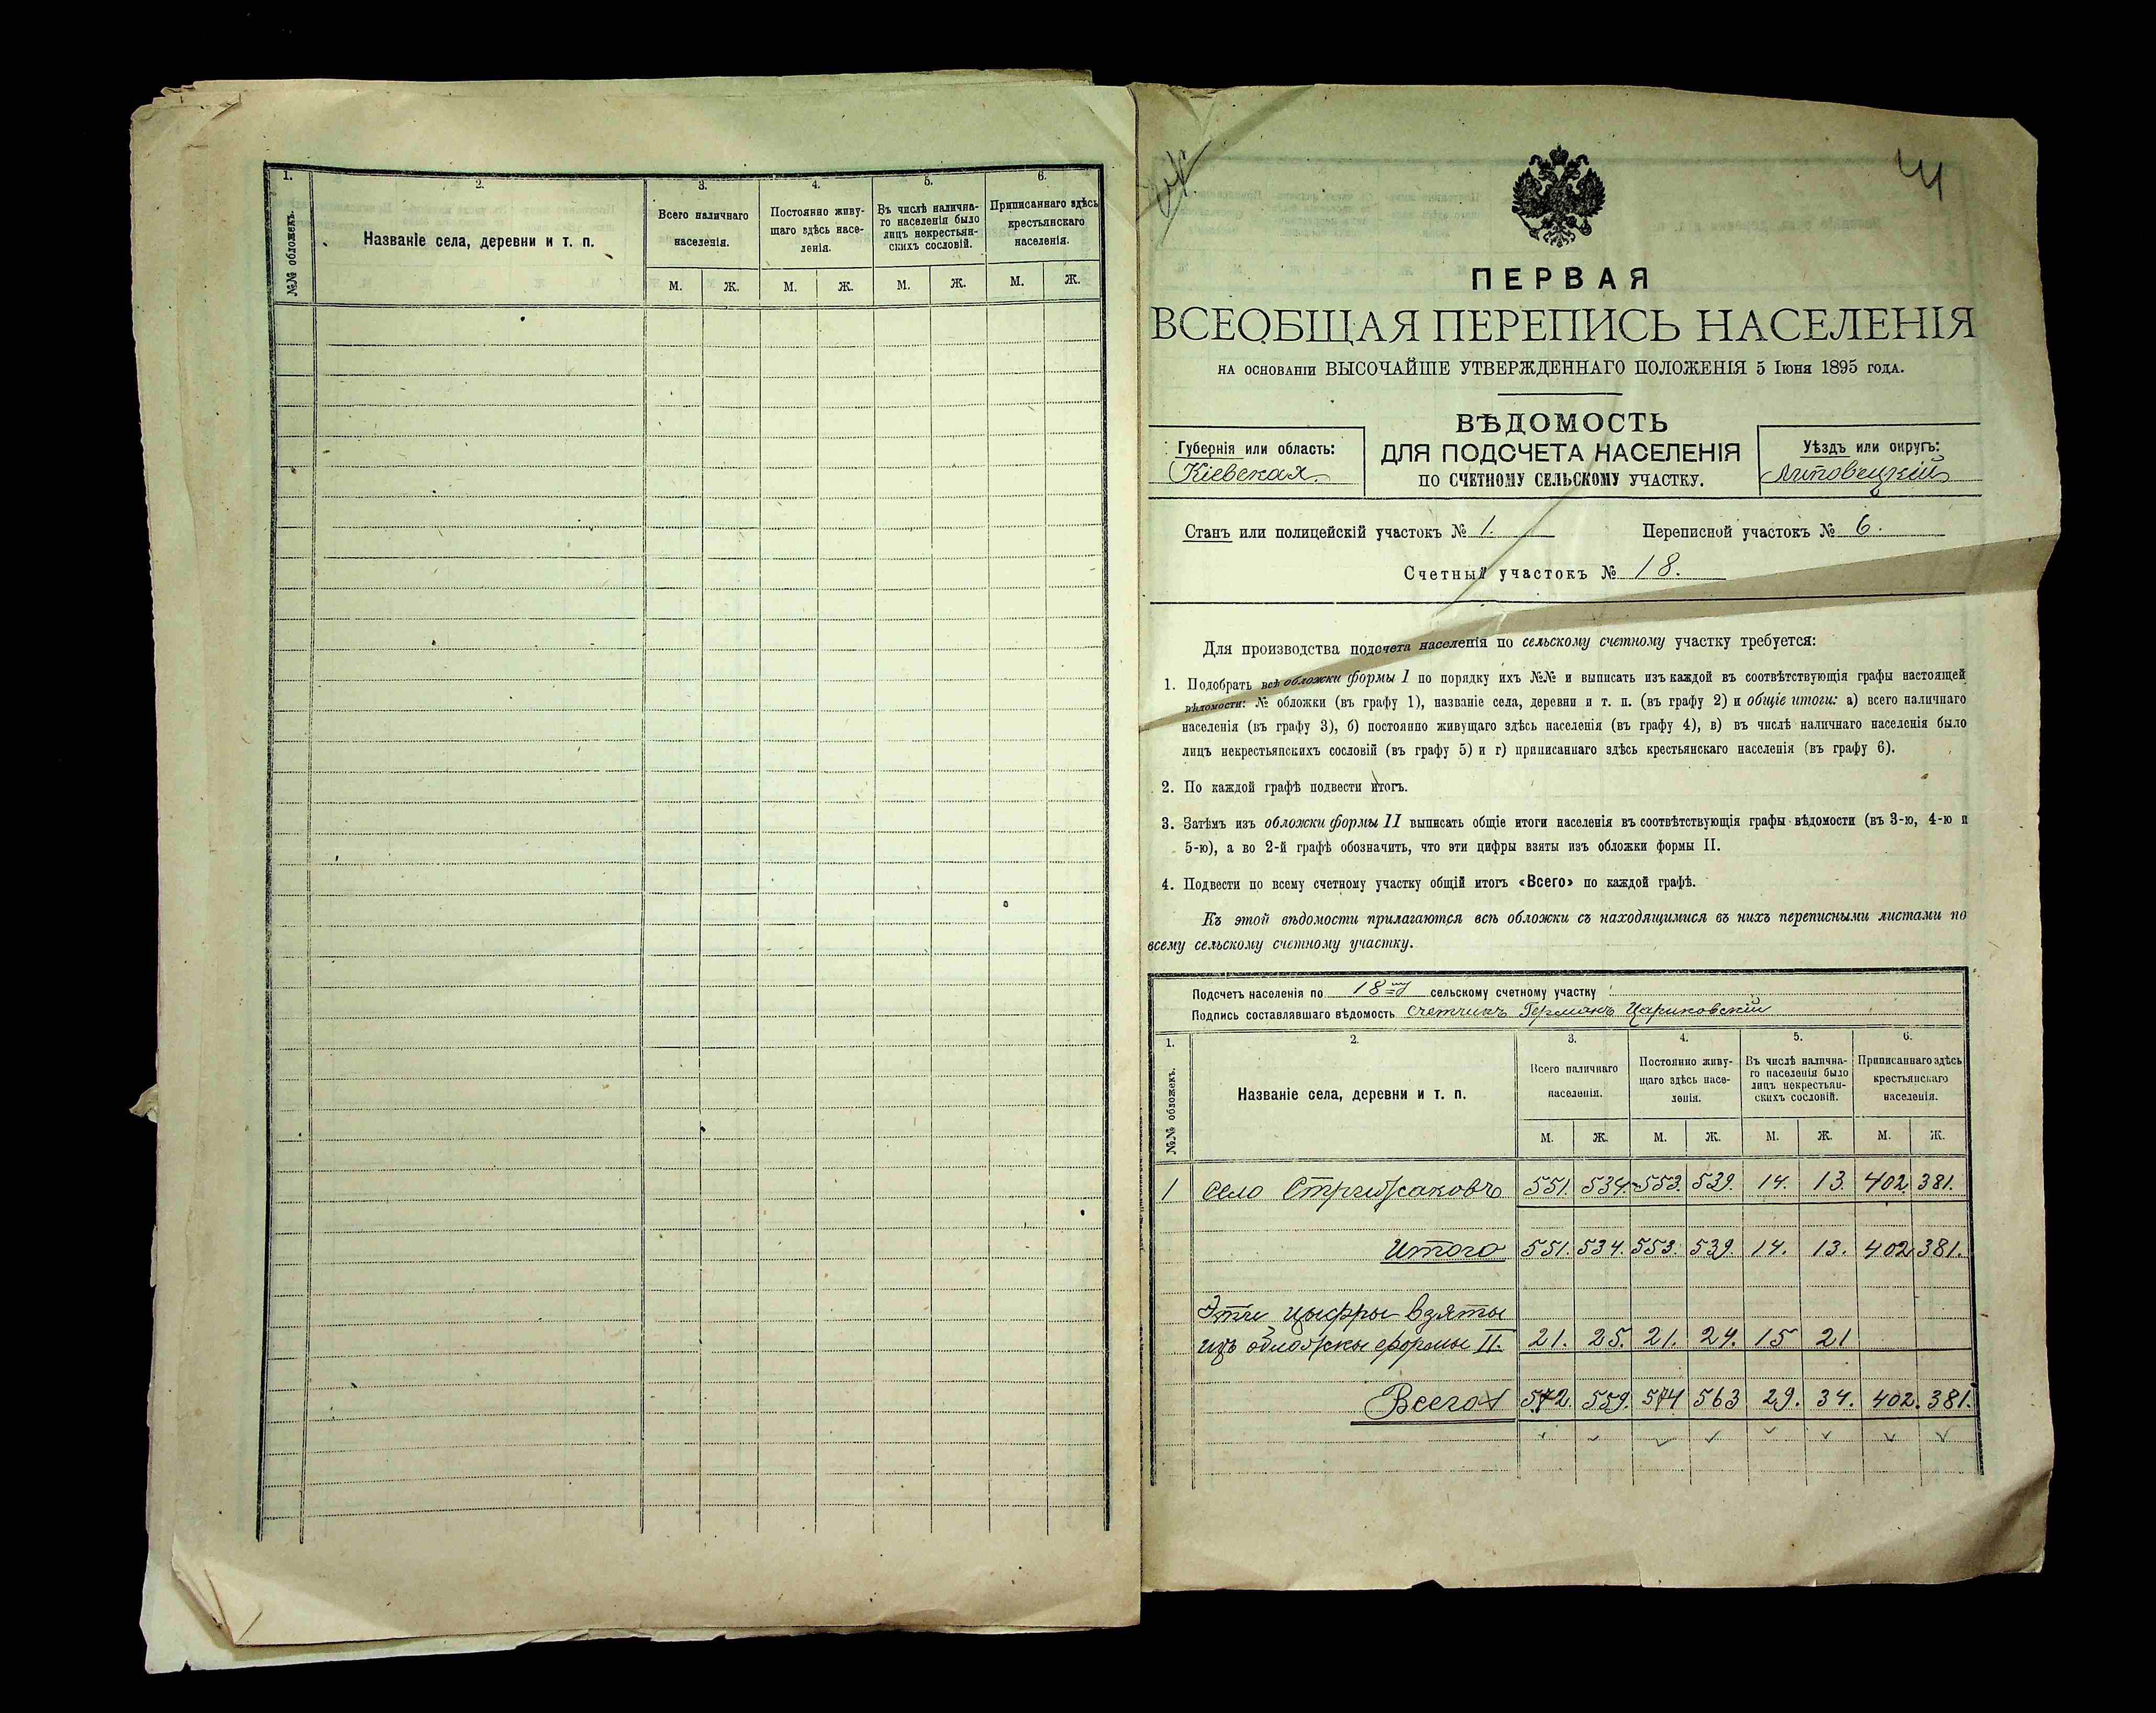 1.
2.
3.
4.
5.
6.
№№ обложекъ.
Названіе села, деревни и т. п.
Всего наличнаго
населенія.
Постоянно живу-
щаго здѣсь насе-
ленія.
Въ числѣ налична-
го населенія было
лицъ некрестьян-
скихъ сословій.
Приписаннаго здѣсь
крестьянскаго
населенія.
М. Ж. М. Ж. М. Ж. М. Ж.
ПЕРВАЯ
ВСЕОБЩАЯ ПЕРЕПИСЬ НАСЕЛЕНІЯ
НА ОСНОВАНІИ ВЫСОЧАЙШЕ УТВЕРЖДЕННАГО ПОЛОЖЕНІЯ 5 Іюня 1895 ГОДА.
ВѢДОМОСТЬ
ДЛЯ ПОДСЧЕТА НАСЕЛЕНІЯ
ПО СЧЕТНОМУ СЕЛЬСКОМУ УЧАСТКУ.
Губернія или область:
Кіевская.
Уѣздъ или округъ:
Липовецкій
Станъ или полицейскій участокъ № 1. Переписной участокъ № 6.
Счетный участокъ № 18.
Для производства подсчета населенія по сельскому счетному участку требуется:
1. Подобрать всѣ обложки формы I по порядку ихъ №№ и выписать изъ каждой въ соотвѣтствующія графы настоящей
вѣдомости: № обложки (въ графу 1), названіе села, деревни и т. п. (въ графу 2) и общіе итоги: а) всего наличнаго
населенія (въ графу 3), б) постоянно живущаго здѣсь населенія (въ графу 4), в) въ числѣ наличнаго населенія было
лицъ некрестьянскихъ сословій (въ графу 5) и г) приписаннаго здѣсь крестьянскаго населенія (въ графу 6).
2. По каждой графѣ подвести итогъ.
3. Затѣмъ изъ обложки формы II выписать общіе итоги населенія въ соотвѣтствующія графы вѣдомости (въ 3-ю, 4-ю и
5-ю), а во 2-й графѣ обозначить, что эти цифры взяты изъ обложки формы II.
4. Подвести по всему счетному участку общій итогъ «Всего» по каждой графѣ.
Къ этой вѣдомости прилагаются всѣ обложки съ находящимися въ нихъ переписными листами по
всему сельскому счетному участку.
Подсчетъ населенія по 18му сельскому счетному участку
Подпись составлявшаго вѣдомость Счетчикъ Германъ Цариковскій
1.
2.
3.
4.
5.
6.
№№ обложекъ.
Названіе села, деревни и т. п.
Всего наличнаго
населенія.
Постоянно живу-
щаго здѣсь насе-
ленія.
Въ числѣ налична-
го населенія было
лицъ некрестьян-
скихъ сословій.
Приписаннаго здѣсь
крестьянскаго
населенія.
М. Ж. М. Ж. М. Ж. М. Ж.
1 село Стрижаковъ 551. 534. 553. 539. 14. 13. 402. 381.
Итого 551. 534. 553. 539. 14. 13. 402 381.
Эти цыфры взяты
изъ обложки формы II. 21. 25. 21. 24. 15 21
Всего 572. 559. 574 563 29. 34. 402. 381.